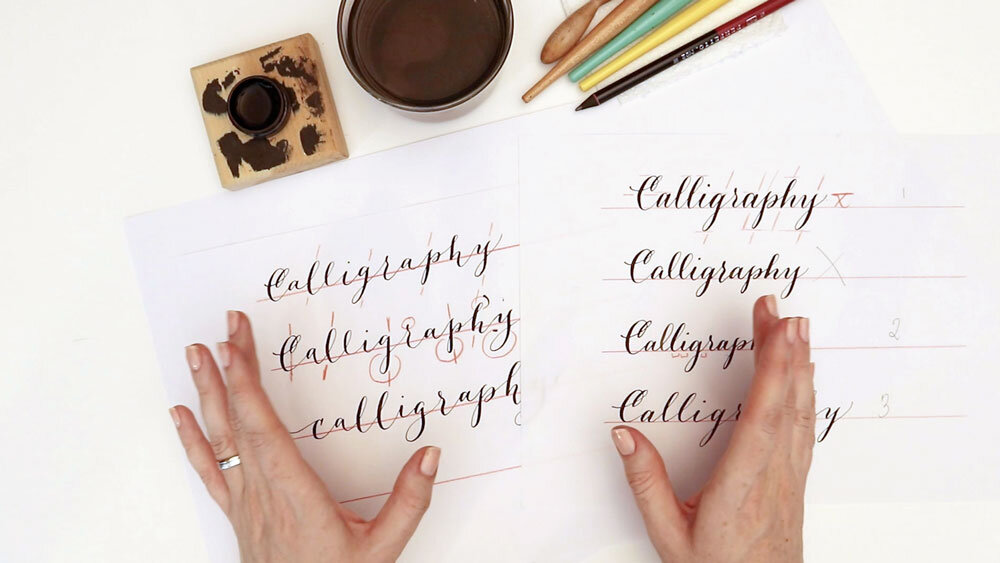 Calligraphy
Calligraphy
calligraphy
Calligraphy x 1
Calligraphy X
Calligrap 2
Calligraphy 3